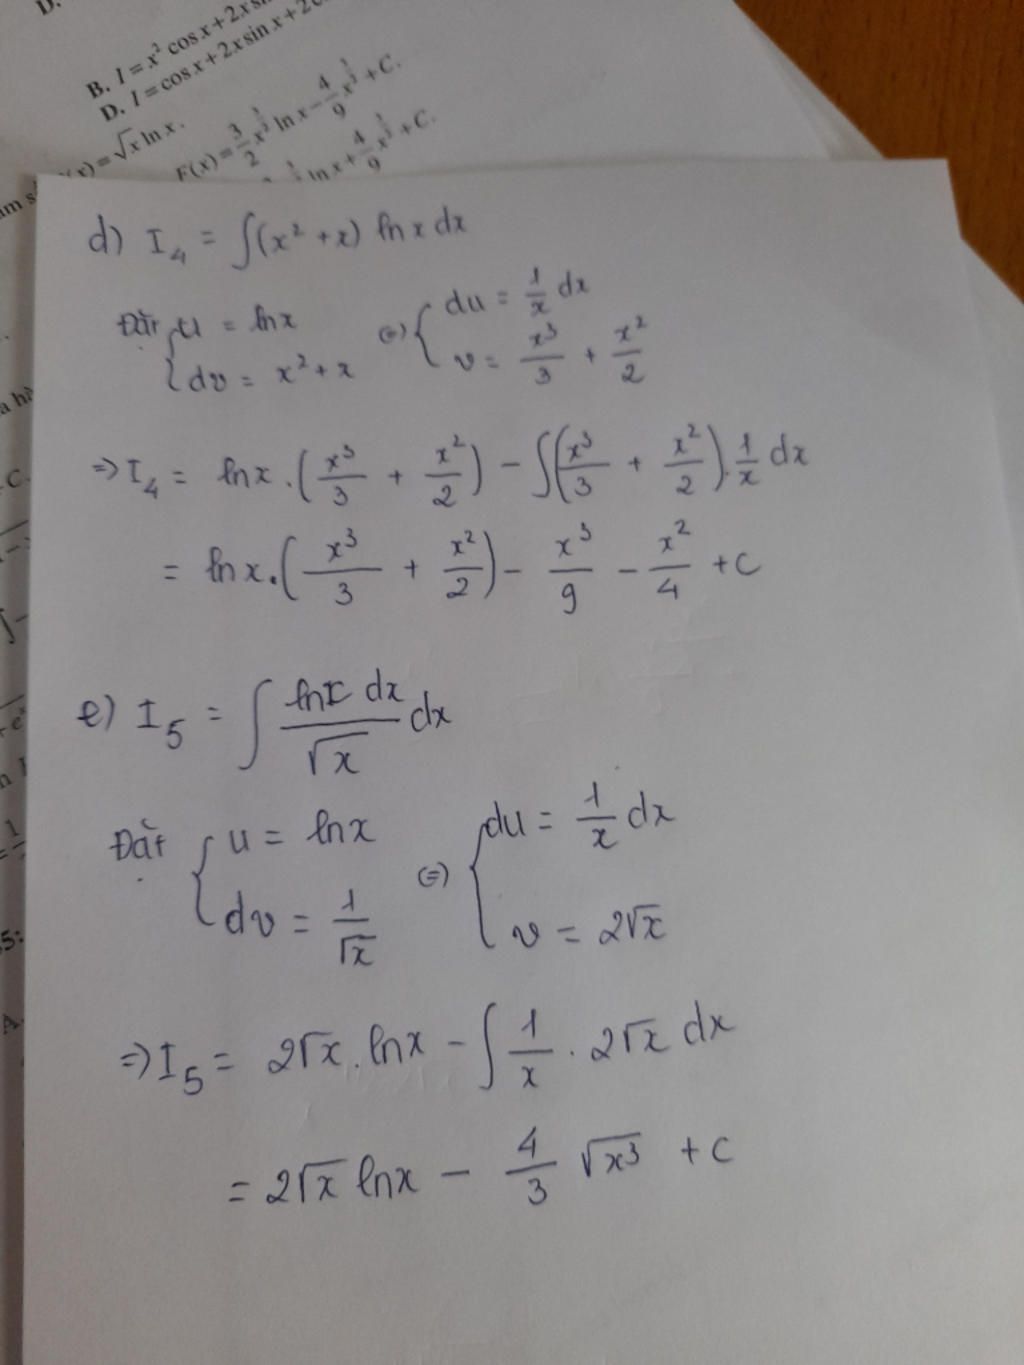 D.
B. I = x² cos x + 2x sin
D. I = cos x + 2x sin x + 2
(x) = √x ln x.
F(x) = 3/2 x^(3/2) ln x − 4/9 x^(3/2) + C.
ln x + 4/9 x^(3/2) + C.
d) I₄ = ∫(x² + x) ln x dx
Đặt { u = ln x ⇔ { du = 1/x dx
dv = x² + x v = x³/3 + x²/2
⇒ I₄ = ln x . (x³/3 + x²/2) − ∫(x³/3 + x²/2) . 1/x dx
= ln x . (x³/3 + x²/2) − x³/9 − x²/4 + C
e) I₅ = ∫ (ln x dx)/√x dx
Đặt { u = ln x ⇔ { du = 1/x dx
dv = 1/√x v = 2√x
⇒ I₅ = 2√x . ln x − ∫ 1/x . 2√x dx
= 2√x ln x − 4/3 √x³ + C